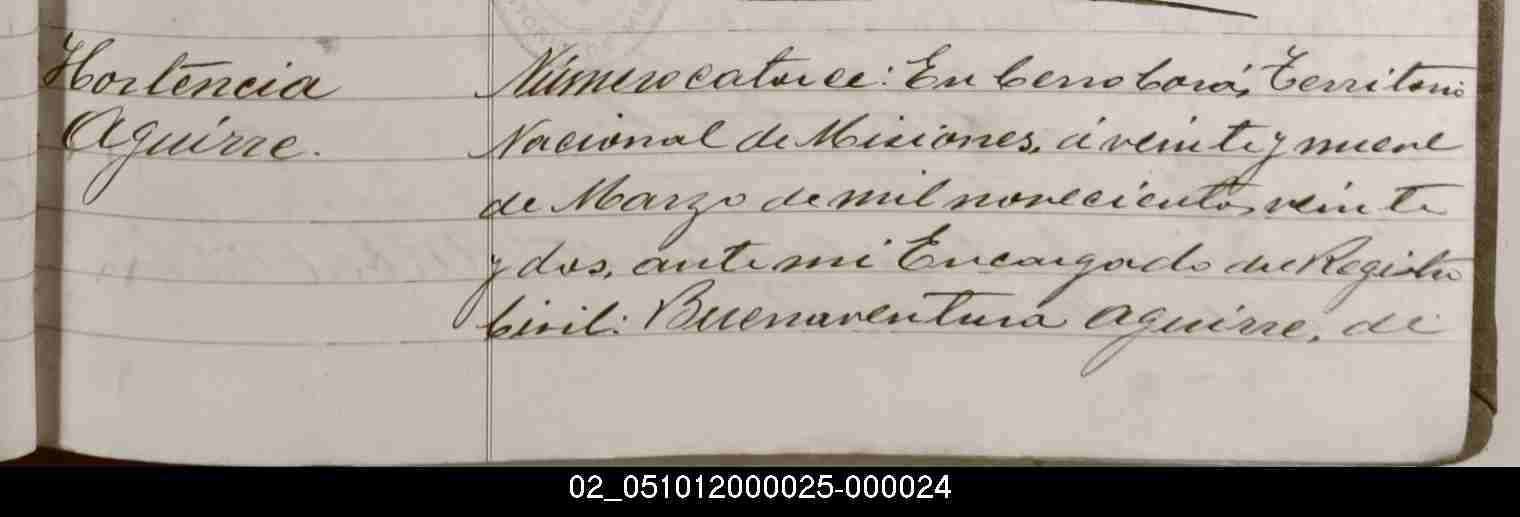 Hortencia
Aguirre.
Número catorce: En Cerro Corá, Territorio
Nacional de Misiones, á veinte y nueve
de Marzo de mil novecientos veinte
y dos, ante mi Encargado del Registro
Civil: Buenaventura Aguirre, de
02_051012000025-000024